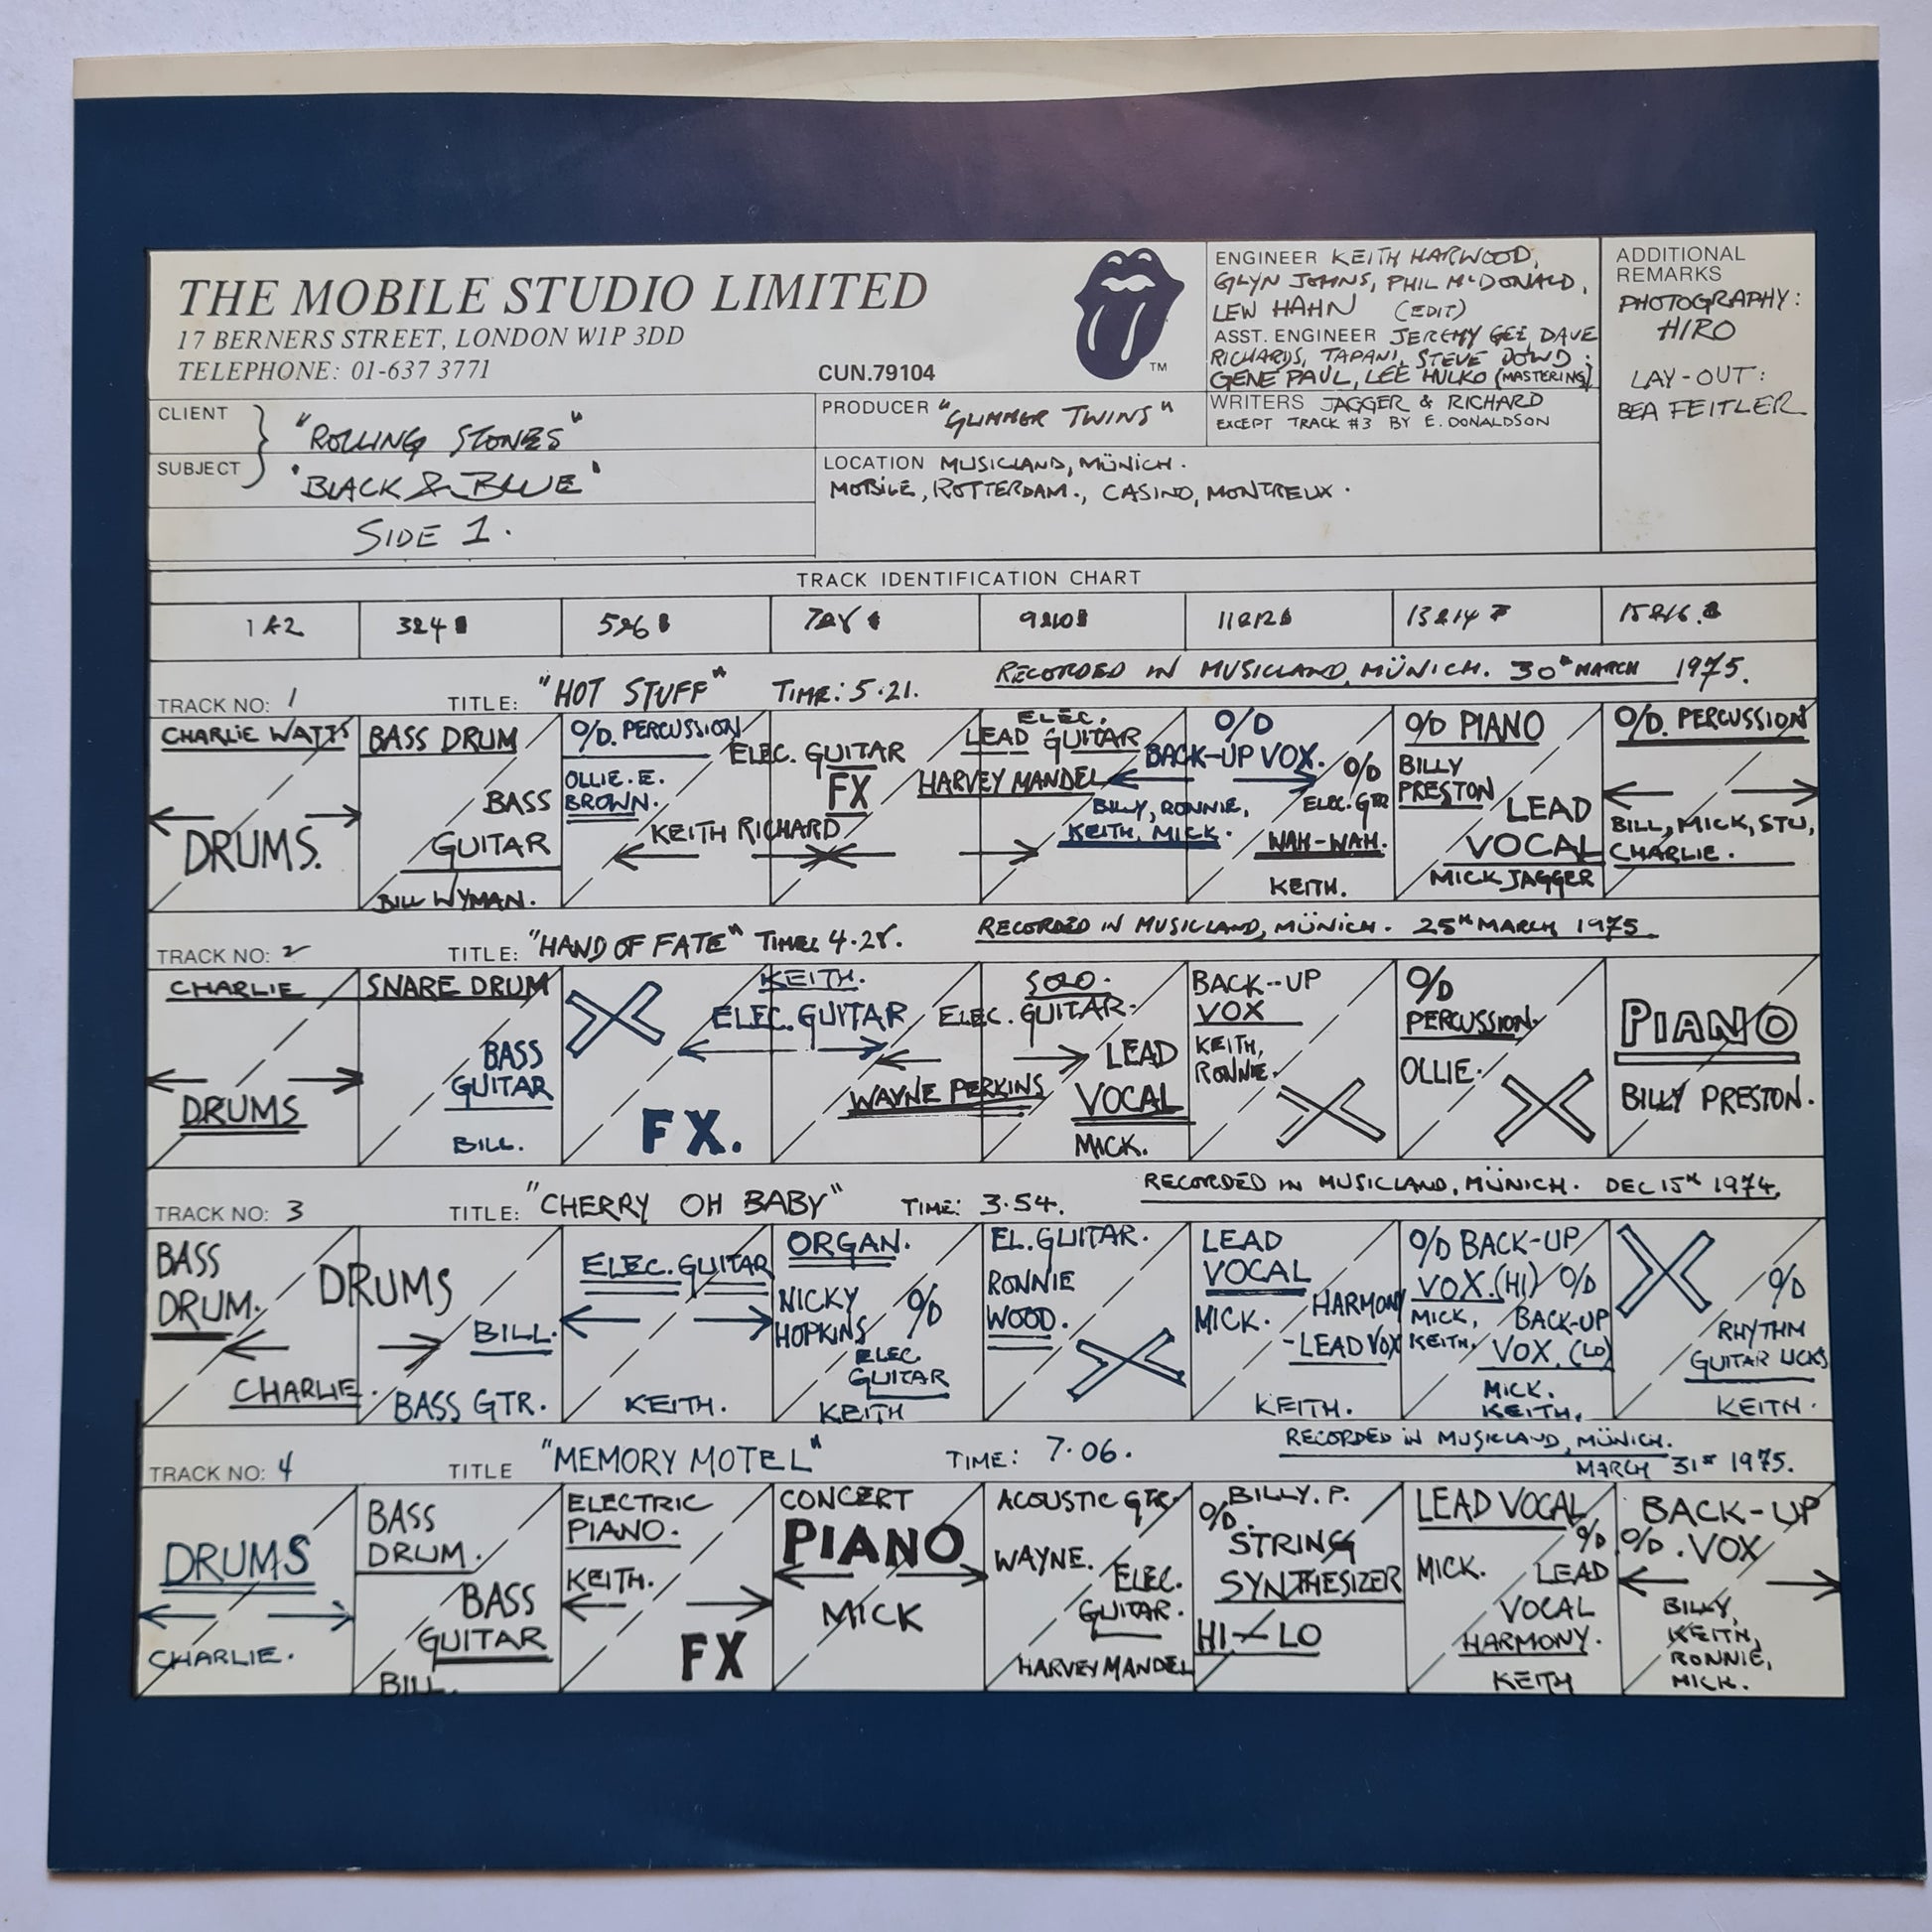 THE MOBILE STUDIO LIMITED
17 BERNERS STREET, LONDON W1P 3DD
TELEPHONE: 01-637 3771
CUN.79104
TM
ENGINEER KEITH HARWOOD,
GLYN JOHNS, PHIL McDONALD,
LEW HAHN (EDIT)
ASST. ENGINEER JEREMY GEE, DAVE
RICHARDS, TAPANI, STEVE DOWD;
GENE PAUL, LEE HULKO (MASTERING)
WRITERS JAGGER & RICHARD
EXCEPT TRACK #3 BY E. DONALDSON
ADDITIONAL
REMARKS
PHOTOGRAPHY:
HIRO
LAY-OUT:
BEA FEITLER
CLIENT "ROLLING STONES"
SUBJECT 'BLACK & BLUE'
SIDE 1.
PRODUCER "GLIMMER TWINS"
LOCATION MUSICLAND, MÜNICH.
MOBILE, ROTTERDAM., CASINO, MONTREUX.
TRACK IDENTIFICATION CHART
1&2 3&4 5&6 7&8 9&10 11&12 13&14 15&16
TRACK NO: 1 TITLE: "HOT STUFF" TIME: 5.21. RECORDED IN MUSICLAND, MÜNICH. 30th MARCH 1975.
CHARLIE WATTS
DRUMS.
BASS DRUM
BASS
GUITAR
BILL WYMAN.
O/D. PERCUSSION
OLLIE. E.
BROWN.
ELEC. GUITAR
FX
KEITH RICHARD
ELEC.
LEAD GUITAR
HARVEY MANDEL
O/D
BACK-UP VOX.
BILLY, RONNIE,
KEITH, MICK.
O/D
ELEC. GTR
WAH-WAH.
KEITH.
O/D PIANO
BILLY
PRESTON
LEAD
VOCAL
MICK JAGGER
O/D. PERCUSSION
BILL, MICK, STU,
CHARLIE.
TRACK NO: 2 TITLE: "HAND OF FATE" TIME: 4.28. RECORDED IN MUSICLAND, MÜNICH. 25th MARCH 1975.
CHARLIE
DRUMS
SNARE DRUM
BASS
GUITAR
BILL.
FX.
KEITH.
ELEC. GUITAR
SOLO.
ELEC. GUITAR.
WAYNE PERKINS
LEAD
VOCAL
MICK.
BACK-UP
VOX
KEITH,
RONNIE.
O/D
PERCUSSION.
OLLIE.
PIANO
BILLY PRESTON.
TRACK NO: 3 TITLE: "CHERRY OH BABY" TIME: 3.54. RECORDED IN MUSICLAND, MÜNICH. DEC 15th 1974,
BASS
DRUM.
DRUMS
CHARLIE.
BILL.
BASS GTR.
ELEC. GUITAR
KEITH.
ORGAN.
NICKY
HOPKINS
O/D
ELEC
GUITAR
KEITH
EL. GUITAR.
RONNIE
WOOD.
LEAD
VOCAL
MICK.
HARMONY
-LEAD VOX
KEITH.
O/D BACK-UP
VOX. (HI)
MICK,
KEITH,
O/D
BACK-UP
VOX. (LO)
MICK.
KEITH,
O/D
RHYTHM
GUITAR LICKS
KEITH.
TRACK NO: 4 TITLE "MEMORY MOTEL" TIME: 7.06. RECORDED IN MUSICLAND, MÜNICH.
MARCH 31st 1975.
DRUMS
CHARLIE.
BASS
DRUM.
BASS
GUITAR
BILL.
ELECTRIC
PIANO.
KEITH.
FX
CONCERT
PIANO
MICK
ACOUSTIC GTR.
WAYNE.
ELEC.
GUITAR.
HARVEY MANDEL
BILLY. P.
O/D.
STRING
SYNTHESIZER
HI - LO
LEAD VOCAL
MICK.
O/D
LEAD
VOCAL
HARMONY.
KEITH
BACK-UP
O/D. VOX
BILLY,
KEITH,
RONNIE,
MICK.